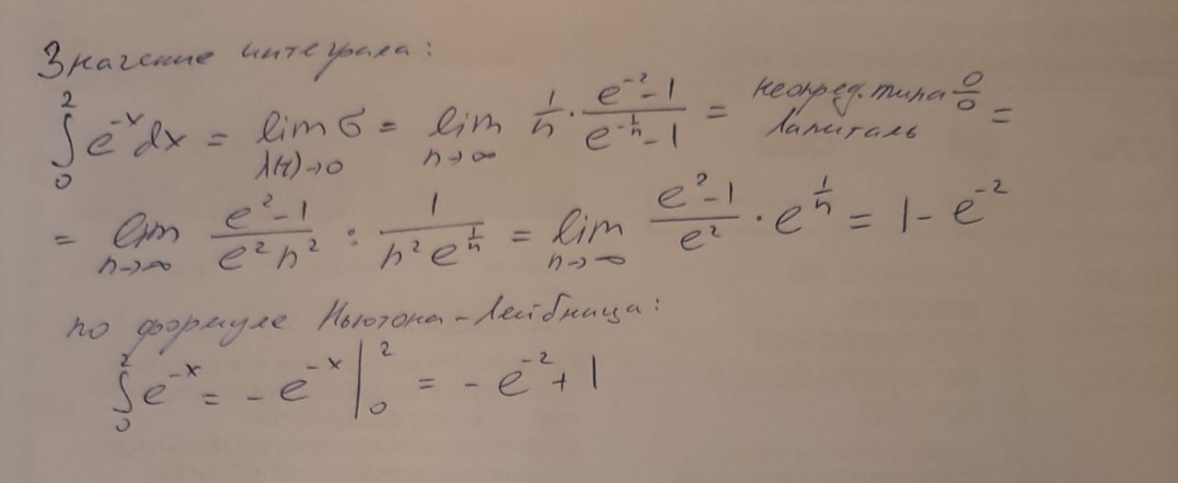 Значение интеграла:
∫₀² e^{-x} dx = lim_{λ(τ)→0} σ = lim_{n→∞} 1/n · (e^{-2}-1)/(e^{-1/n}-1) = неопред. типа 0/0 Лапиталь =
= lim_{n→∞} (e²-1)/(e²n²) : 1/(n²e^{1/n}) = lim_{n→∞} (e²-1)/e² · e^{1/n} = 1 - e^{-2}
по формуле Ньютона-Лейбница:
∫₀² e^{-x} = -e^{-x} |₀² = -e^{-2} + 1